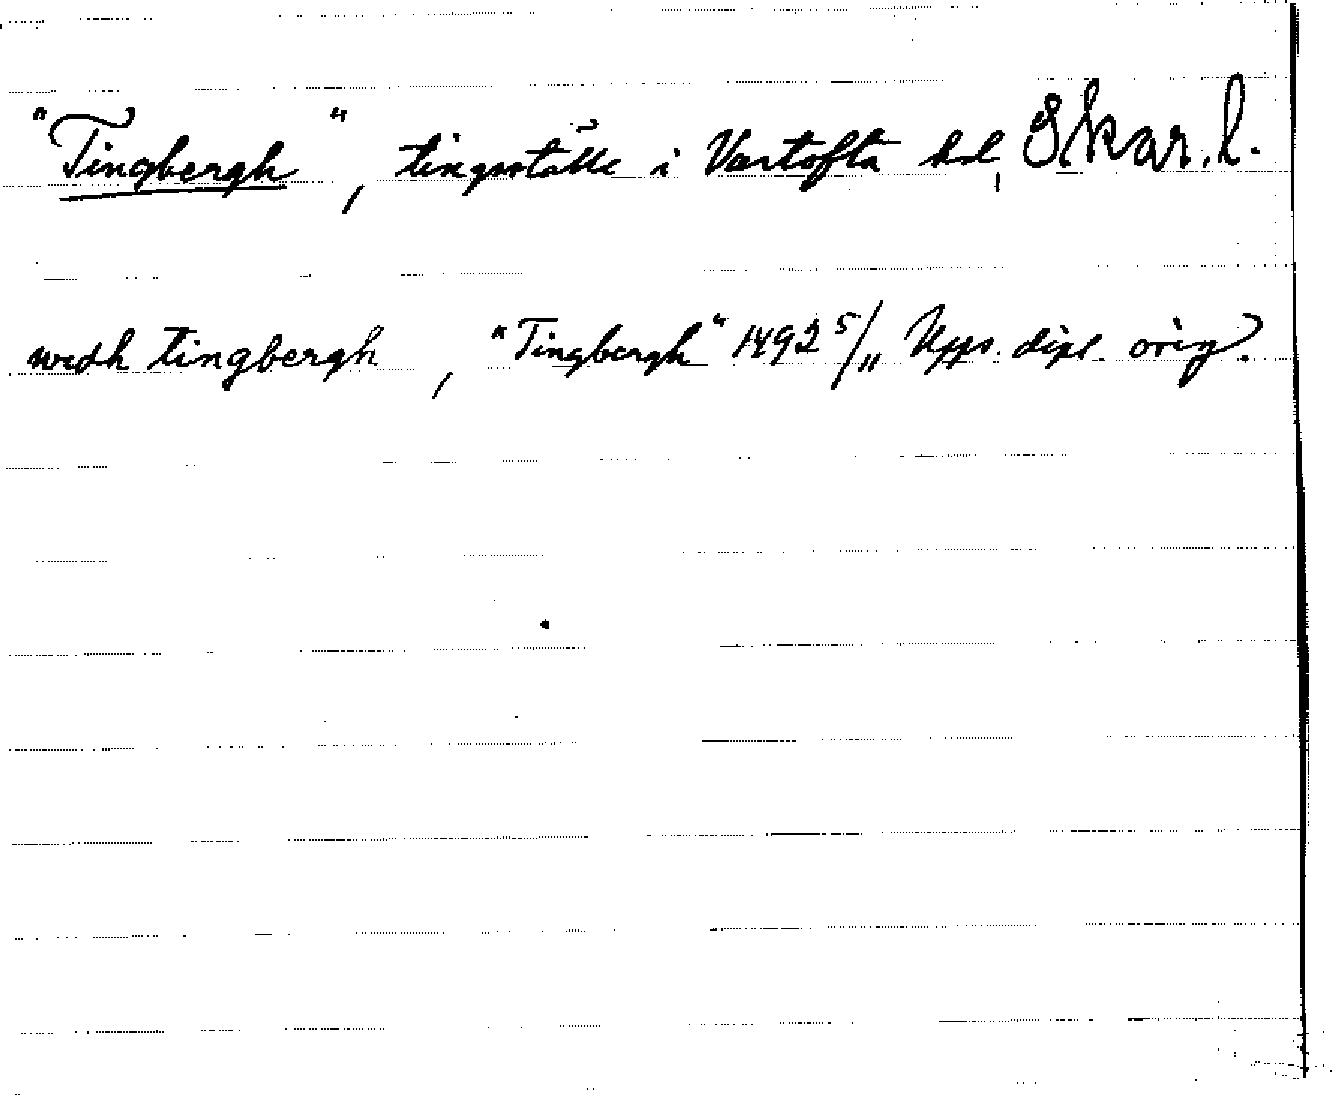 "Tingbergh", tingsställe i Vartofta hd, Skar.l.
wedh tingbergh, "Tingbergh" 1492 5/11 Upps. dipl. orig.